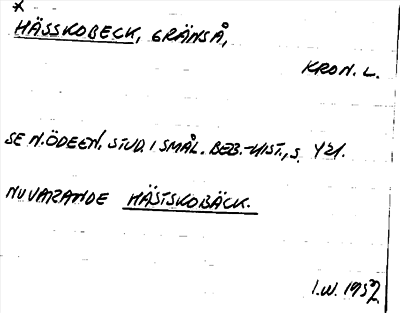 *
HÄSSKOBECK, GRÄNSÅ,
KRON. L.
SE N. ÖDEEN, STUD. I SMÅL. BEB.-HIST., S. 421.
NUVARANDE HÄSTSKOBÄCK.
I.W. 1957